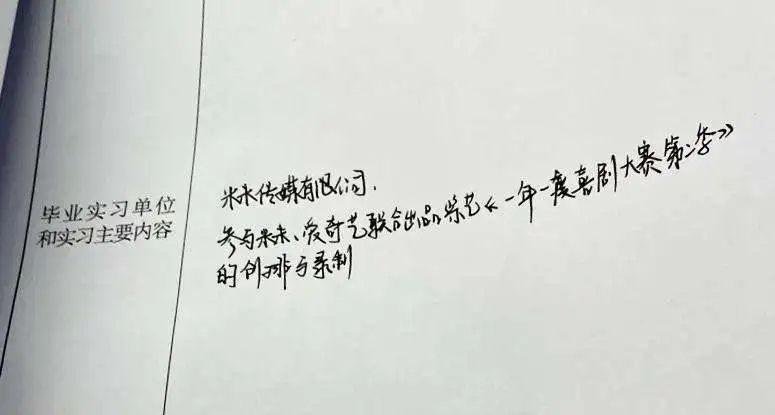 毕业实习单位
和实习主要内容
米未传媒有限公司.
参与米未、爱奇艺联合出品综艺《一年一度喜剧大赛第二季》
的创排与录制